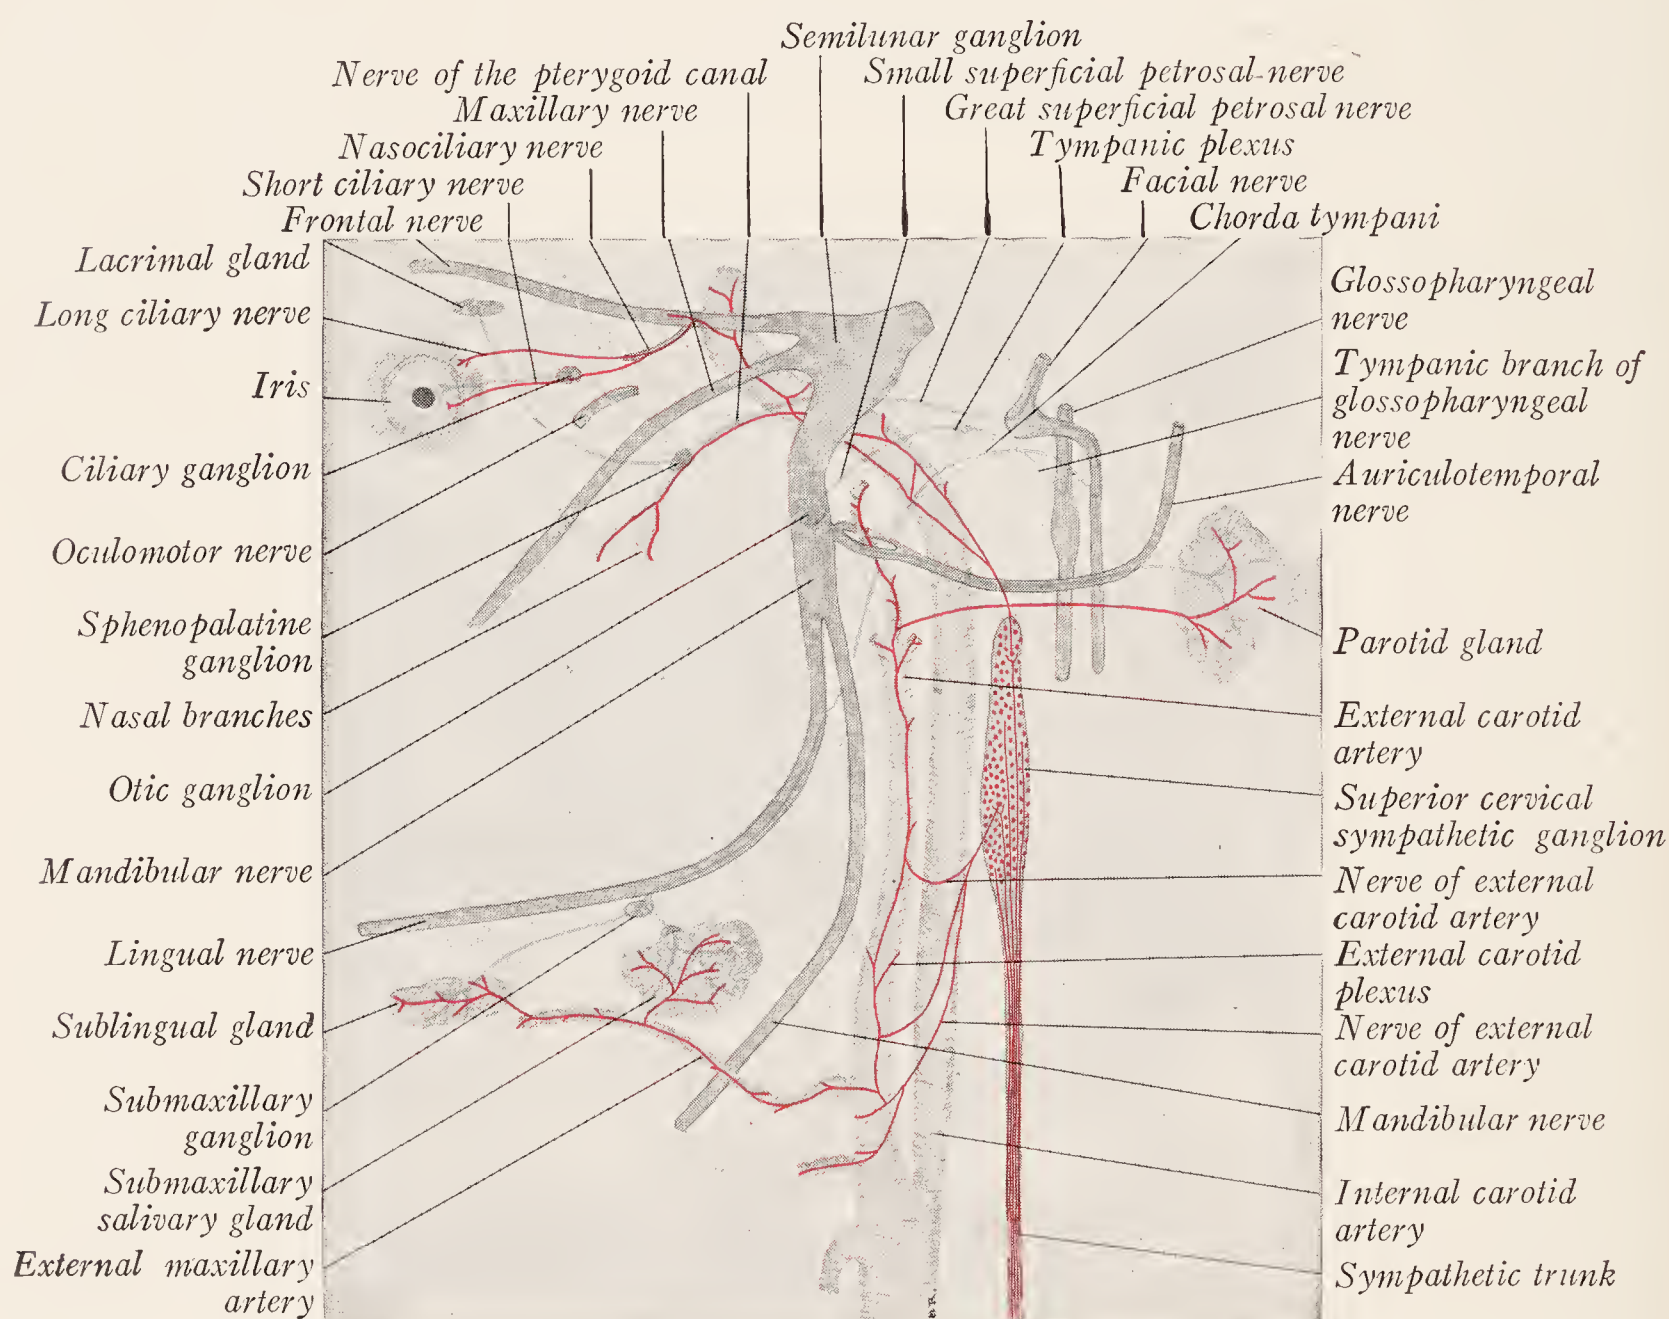 Semilunar ganglion
Nerve of the pterygoid canal
Small superficial petrosal nerve
Maxillary nerve
Great superficial petrosal nerve
Nasociliary nerve
Tympanic plexus
Short ciliary nerve
Facial nerve
Frontal nerve
Chorda tympani
Lacrimal gland
Long ciliary nerve
Iris
Ciliary ganglion
Oculomotor nerve
Sphenopalatine
ganglion
Nasal branches
Otic ganglion
Mandibular nerve
Lingual nerve
Sublingual gland
Submaxillary
ganglion
Submaxillary
salivary gland
External maxillary
artery
Glossopharyngeal
nerve
Tympanic branch of
glossopharyngeal
nerve
Auriculotemporal
nerve
Parotid gland
External carotid
artery
Superior cervical
sympathetic ganglion
Nerve of external
carotid artery
External carotid
plexus
Nerve of external
carotid artery
Mandibular nerve
Internal carotid
artery
Sympathetic trunk